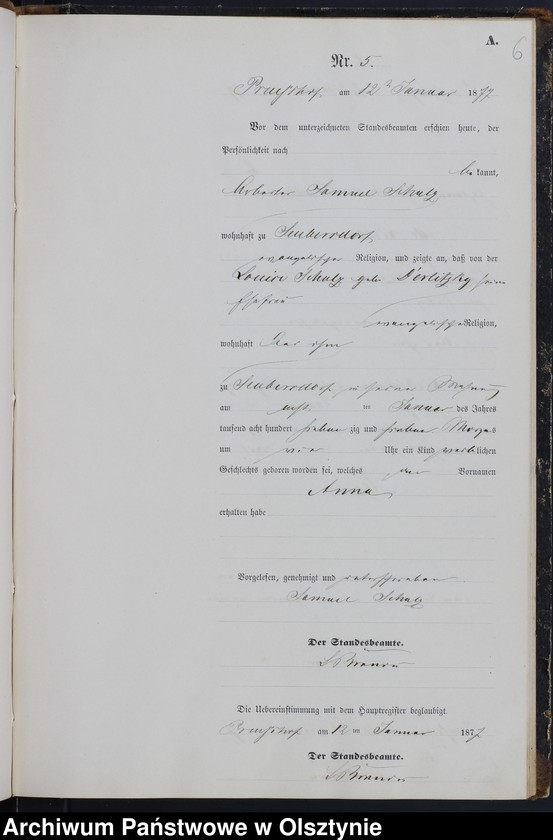 A.
6
Nr. 5.
am 12ten Januar 1877
Vor dem unterzeichneten Standesbeamten erschien heute, der
Persönlichkeit nach
bekannt,
Arbeiter Samuel Schulz
wohnhaft zu Seubersdorf
evangelischer Religion, und zeigte an, daß von der
Louise Schulz geb. seine
Ehefrau
evangelische Religion,
wohnhaft bei ihm
zu Seubersdorf in seiner Wohnung
am Januar des Jahres
tausend acht hundert siebenzig und sieben Morgens
um vier Uhr ein Kind weiblichen
Geschlechts geboren worden sei, welches den Vornamen
Anna
erhalten habe
Vorgelesen, genehmigt und unterschrieben
Samuel Schulz
Der Standesbeamte.
Die Uebereinstimmung mit dem Hauptregister beglaubigt
am 12ten Januar 1877
Der Standesbeamte.
Archiwum Państwowe w Olsztynie